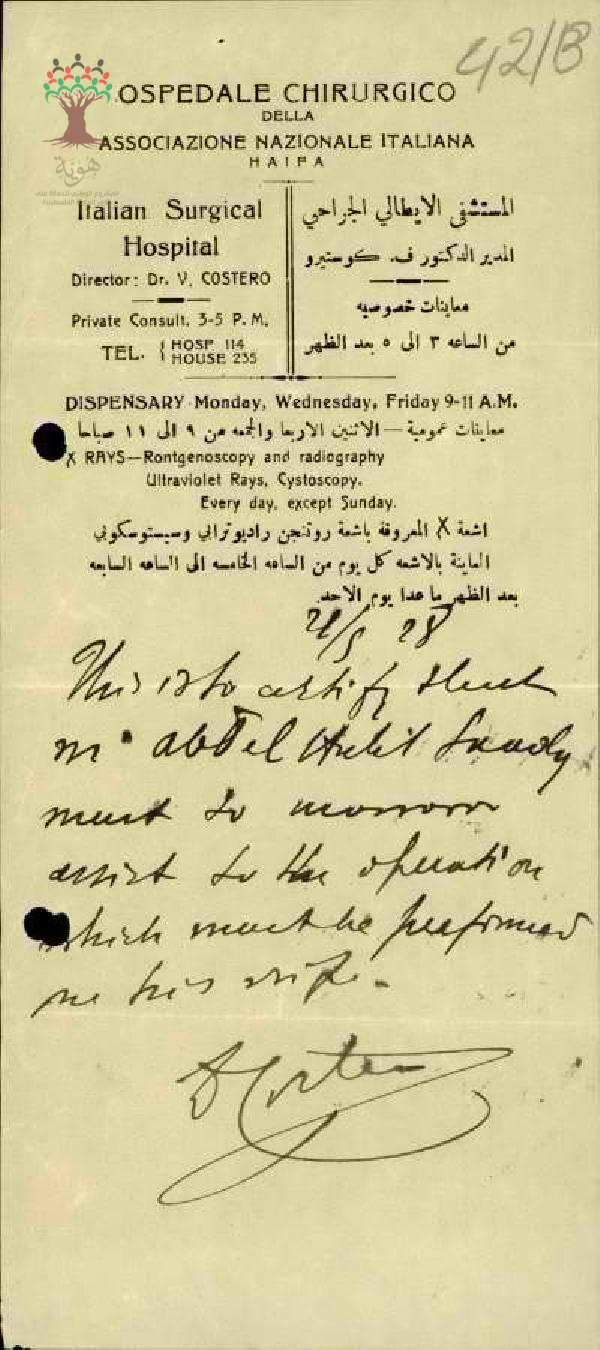 42/B
OSPEDALE CHIRURGICO
DELLA
ASSOCIAZIONE NAZIONALE ITALIANA
HAIFA
هوية
Italian Surgical
Hospital
Director: Dr. V. COSTERO
Private Consult. 3-5 P. M.
TEL. { HOSP 114
HOUSE 235
المستشفى الايطالي الجراحي
المدير الدكتور ف. كوستيرو
معاينات خصوصيه
من الساعه ٣ الى ٥ بعد الظهر
DISPENSARY Monday, Wednesday, Friday 9-11 A.M.
معاينات عمومية — الاثنين الاربعا والجمعه من ٩ الى ١١ صباحا
X RAYS—Rontgenoscopy and radiography
Ultraviolet Rays, Cystoscopy.
Every day, except Sunday.
اشعة X المعروفة باشعة روتنجن راديوترابي وسيستوسكوبي
المعاينة بالاشعه كل يوم من الساعه الخامسه الى الساعه السابعه
بعد الظهر ما عدا يوم الاحد.
28
This is to certify that
Mr Abdel
must to morrow
assist to the operation
which must be performed
on his wife.
Costero